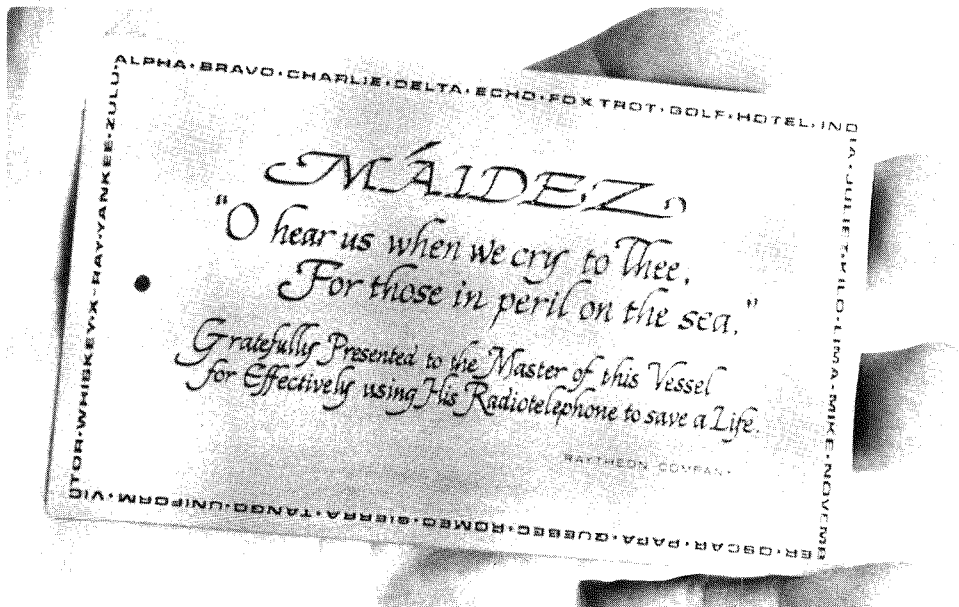 ALPHA·BRAVO·CHARLIE·DELTA·ECHO·FOX TROT·GOLF·HOTEL·IND
IA·JULIET·KILO·LIMA·MIKE·NOVEMB
ER·OSCAR·PAPA·QUEBEC·ROMEO·SIERRA·TANGO·UNIFORM·VIC
TOR·WHISKEY·X-RAY·YANKEE·ZULU
MÁIDEZ
"O hear us when we cry to Thee,
For those in peril on the sea."
Gratefully Presented to the Master of this Vessel
for Effectively using His Radiotelephone to save a Life.
RAYTHEON COMPANY